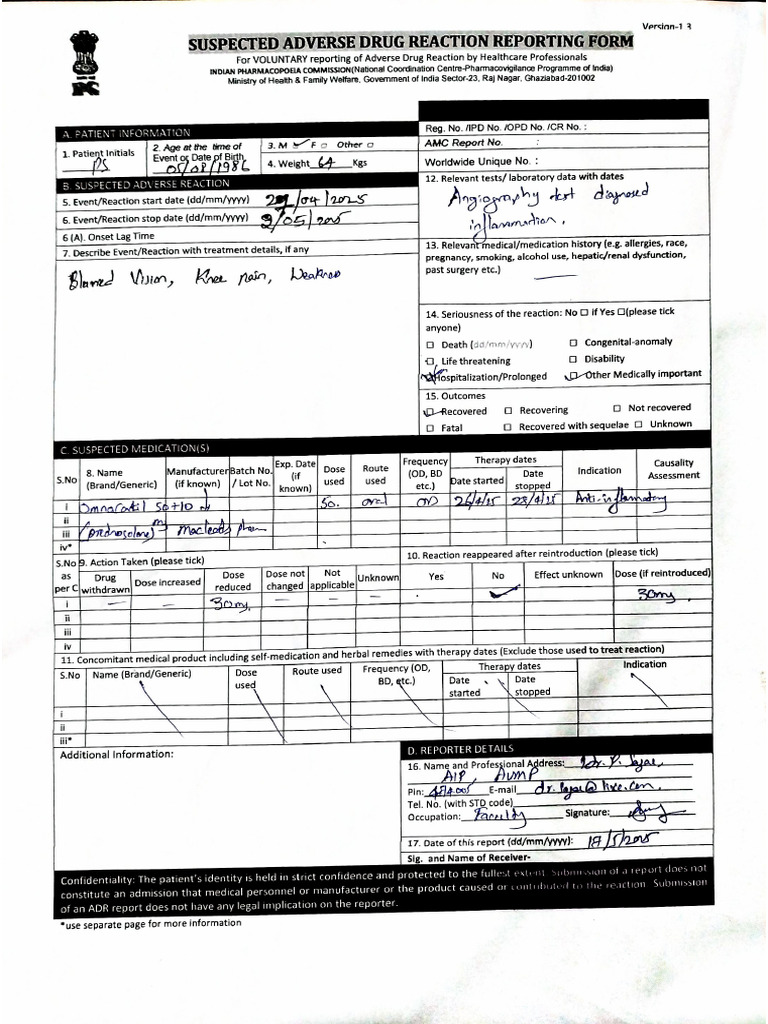 Version-1.3
SUSPECTED ADVERSE DRUG REACTION REPORTING FORM
For VOLUNTARY reporting of Adverse Drug Reaction by Healthcare Professionals
INDIAN PHARMACOPOEIA COMMISSION(National Coordination Centre-Pharmacovigilance Programme of India)
Ministry of Health & Family Welfare, Government of India Sector-23, Raj Nagar, Ghaziabad-201002
A. PATIENT INFORMATION
1. Patient Initials PS
2. Age at the time of Event or Date of Birth 05/08/1986
3. M ☑ F ☐ Other ☐
4. Weight 64 Kgs
Reg. No. /IPD No. /OPD No. /CR No. :
AMC Report No. :
Worldwide Unique No. :
B. SUSPECTED ADVERSE REACTION
5. Event/Reaction start date (dd/mm/yyyy) /04/2025
6. Event/Reaction stop date (dd/mm/yyyy) /05/2025
6 (A). Onset Lag Time
7. Describe Event/Reaction with treatment details, if any
Blurred Vision, Knee pain, Weakness
12. Relevant tests/ laboratory data with dates
Angiography test diagnosed
inflammation.
13. Relevant medical/medication history (e.g. allergies, race,
pregnancy, smoking, alcohol use, hepatic/renal dysfunction,
past surgery etc.)
14. Seriousness of the reaction: No ☐ if Yes ☐(please tick
anyone)
☐ Death (dd/mm/yyyy) ☐ Congenital-anomaly
☐ Life threatening ☐ Disability
☑ Hospitalization/Prolonged ☑ Other Medically important
15. Outcomes
☑ Recovered ☐ Recovering ☐ Not recovered
☐ Fatal ☐ Recovered with sequelae ☐ Unknown
C. SUSPECTED MEDICATION(S)
S.No 8. Name (Brand/Generic) Manufacturer (if known) Batch No. / Lot No. Exp. Date (if known) Dose used Route used Frequency (OD, BD etc.) Therapy dates Date started Date stopped Indication Causality Assessment
i 50. oral OD 26/4/25 28/4/25 Anti-inflammatory
ii
iii (prednosolone) Macleods pham
iv*
S.No as per C 9. Action Taken (please tick) 10. Reaction reappeared after reintroduction (please tick)
Drug withdrawn Dose increased Dose reduced Dose not changed Not applicable Unknown Yes No Effect unknown Dose (if reintroduced)
i — — 30mg — — — ✓ 30mg
ii
iii
iv
11. Concomitant medical product including self-medication and herbal remedies with therapy dates (Exclude those used to treat reaction)
S.No Name (Brand/Generic) Dose used Route used Frequency (OD, BD, etc.) Therapy dates Date started Date stopped Indication
i
ii
iii*
Additional Information:
D. REPORTER DETAILS
16. Name and Professional Address: Dr. P.
AIP, AUMP
Pin: E-mail
Tel. No. (with STD code)
Occupation: Faculty Signature:
17. Date of this report (dd/mm/yyyy): /5/2025
Sig. and Name of Receiver-
Confidentiality: The patient's identity is held in strict confidence and protected to the fullest extent. Submission of a report does not
constitute an admission that medical personnel or manufacturer or the product caused or contributed to the reaction. Submission
of an ADR report does not have any legal implication on the reporter.
*use separate page for more information